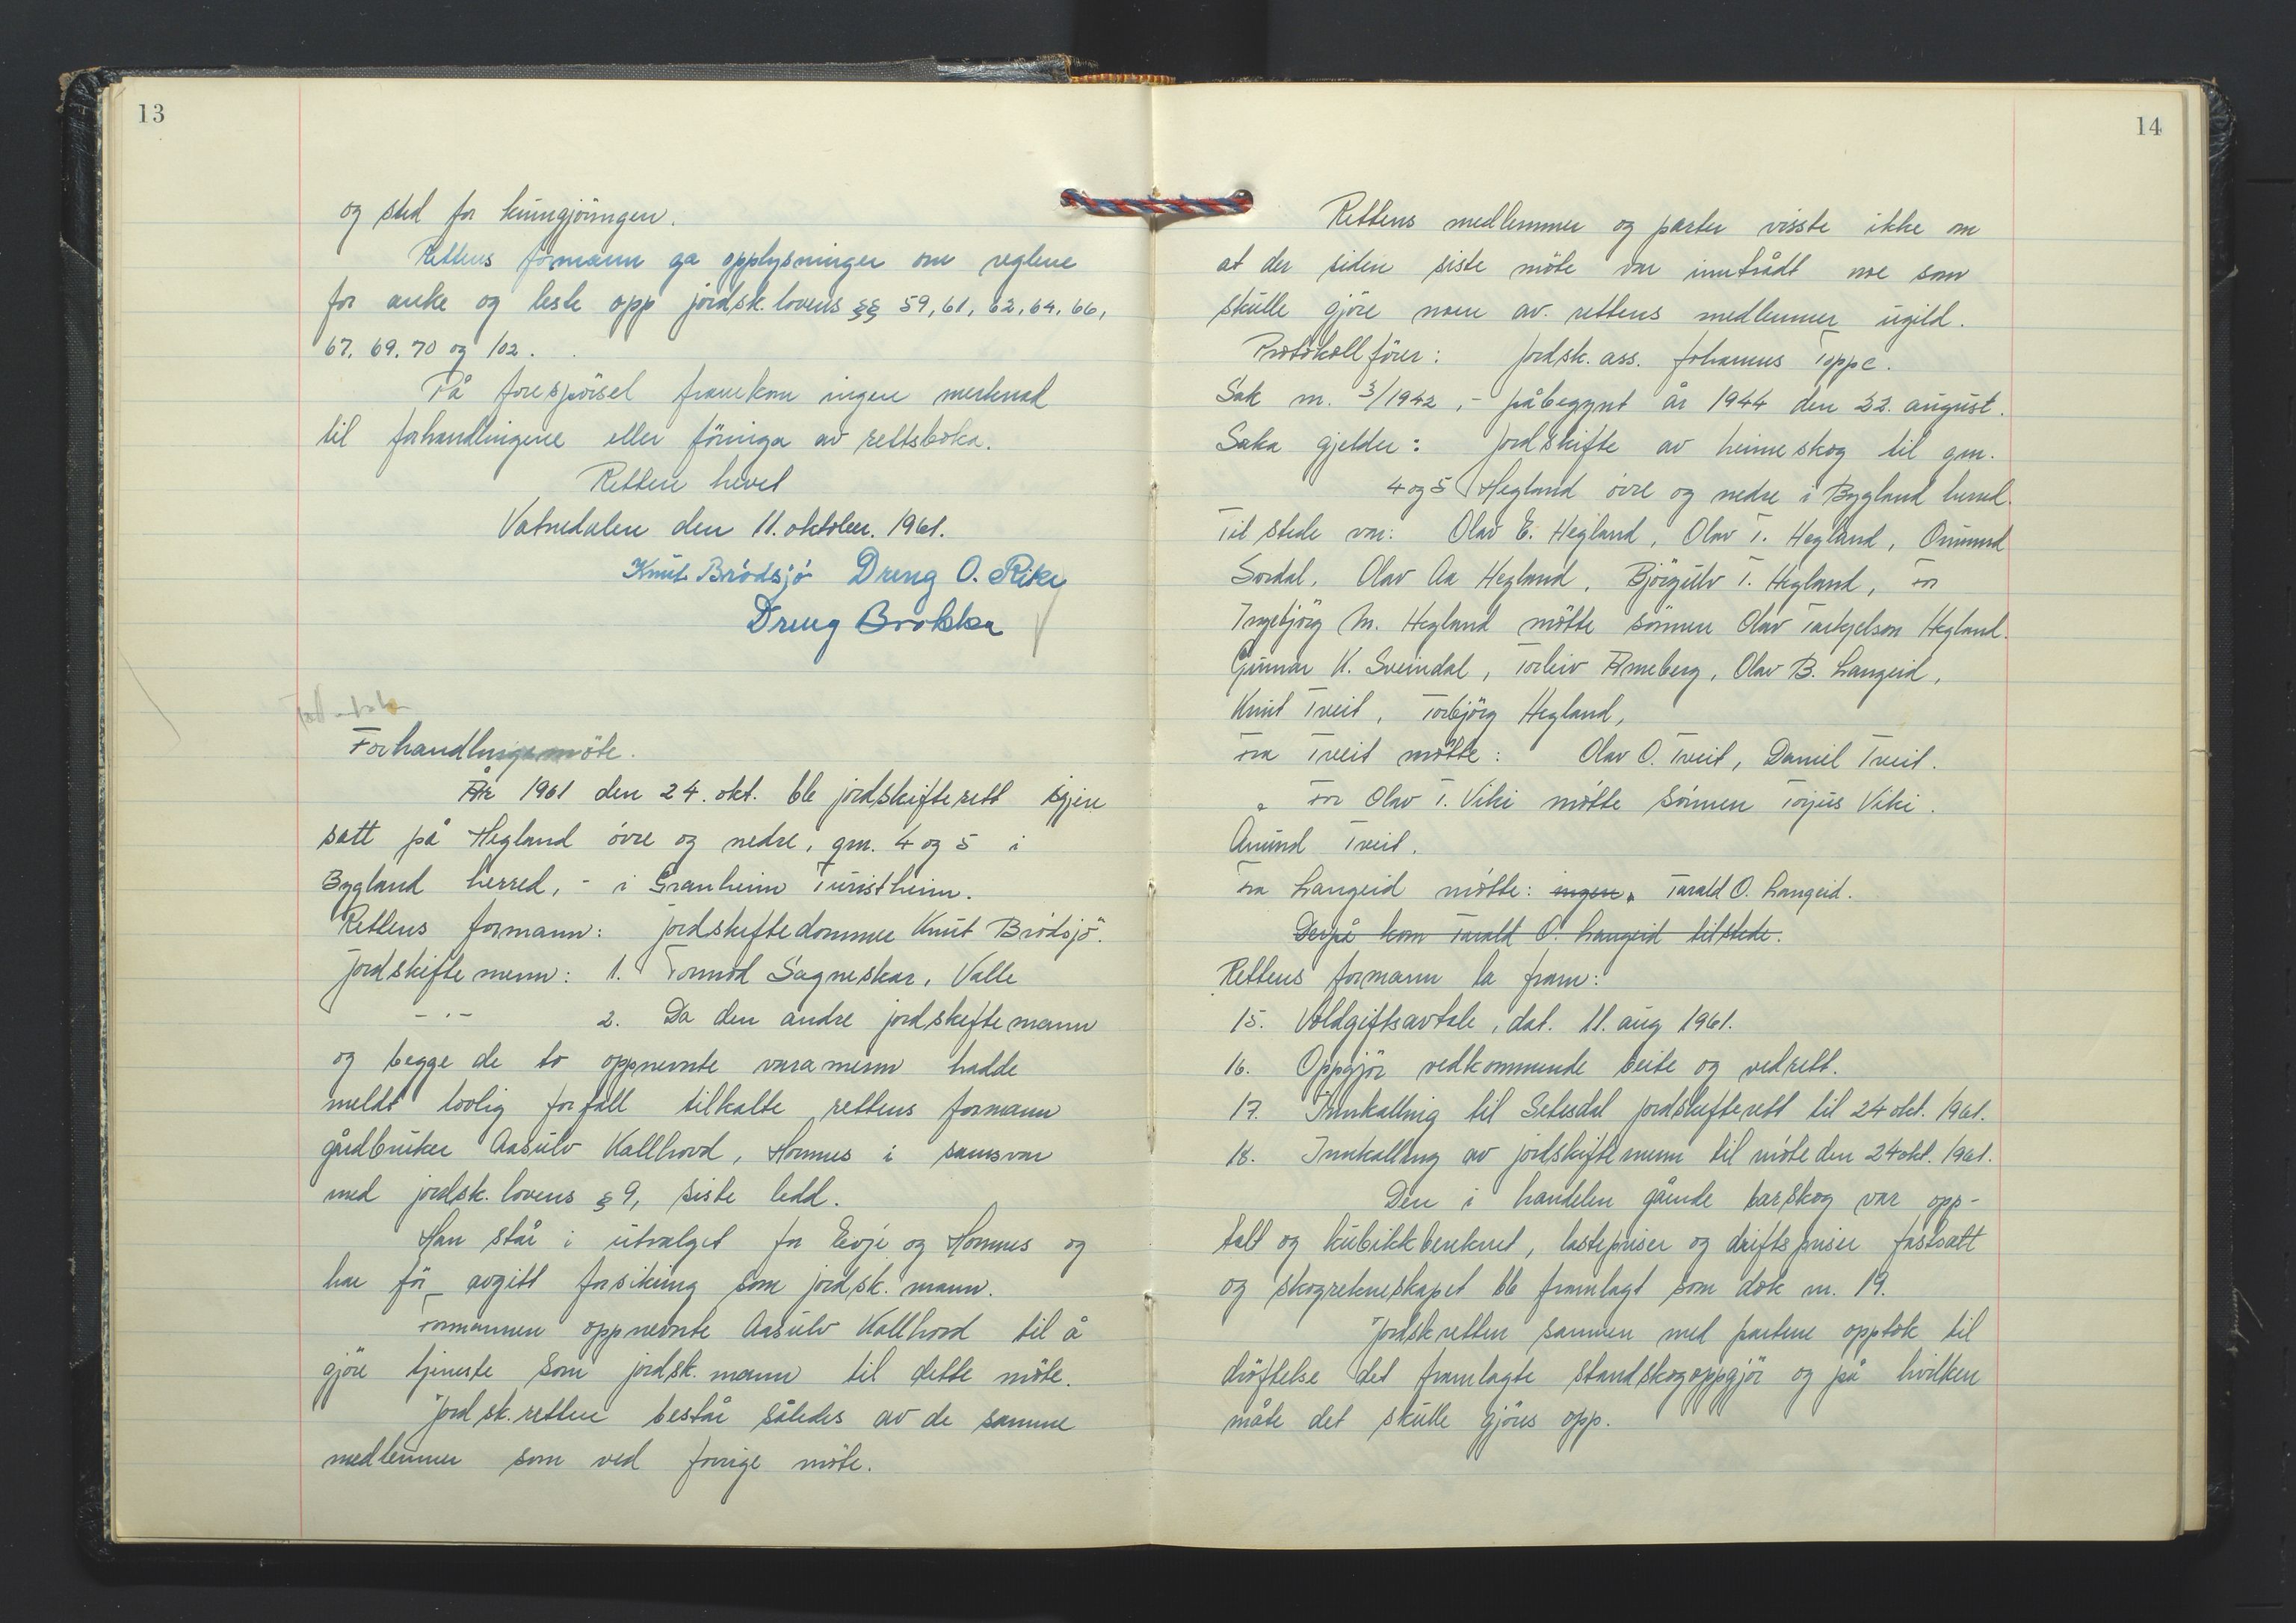 13
og sted for kunngjöringen.
Rettens formann ga opplysninger om reglene
for anke og leste opp jordsk.lovens §§ 59, 61, 62, 64, 66,
67, 69, 70 og 102.
På forespörsel framkom ingen merknad
til forhandlingene eller föringa av rettsboka.
Retten hevet
Vatnedalen den 11. oktober. 1961.
Knut Brödsjö Dreng O. Rike
Dreng Brokka
Forhandlingsmöte.
År 1961 den 24. okt. ble jordskifterett igjen
satt på Hegland övre og nedre, gnr. 4 og 5 i
Bygland herred, - i Granheim Turistheim.
Rettens formann: jordskiftedommer Knut Brödsjö.
Jordskiftemenn: 1. Tormod Sagneskar, Valle
- " - 2. Da den andre jordskiftemann
og begge de to oppnevnte varamenn hadde
meldt lovlig forfall tilkalte rettens formann
gårdbruker Aasulv Kallhovd, Hornnes i samsvar
med jordsk.lovens § 9, siste ledd.
Han står i utvalget for Evje og Hornnes og
har för avgitt forsikring som jordsk.mann.
Formannen oppnevnte Aasulv Kallhovd til å
gjöre tjeneste som jordsk.mann til dette möte.
Jordsk.retten består således av de samme
medlemmer som ved forrige möte.
14
Rettens medlemmer og parter visste ikke om
at der siden siste möte var inntrådt noe som
skulle gjöre noen av rettens medlemmer ugild.
Protokollförer: jordsk.ass. Johannes Toppe.
Sak nr. 3/1942, - påbegynt år 1944 den 22. august.
Saka gjelder: Jordskifte av heimeskog til gnr.
4 og 5 Hegland övre og nedre i Bygland herred.
Til stede var: Olav E. Hegland, Olav T. Hegland, Ommund
Sordal, Olav Aa Hegland, Björgulv T. Hegland, For
Ingebjörg M. Hegland mötte sönnen Olav Tarkjelson Hegland.
Gunnar K. Sveindal, Torleiv Arneberg, Olav B. Langeid,
Knut Tveit, Torbjörg Hegland,
Fra Tveit mötte: Olav O. Tveit, Daniel Tveit.
" For Olav T. Viki mötte sönnen Torjus Viki.
Anund Tveit.
Fra Langeid mötte: ingen. Tarald O. Langeid.
Derpå kom Tarald O. Langeid tilstede.
Rettens formann la fram:
15. Voldgiftsavtale, dat. 11. aug 1961.
16. Oppgjör vedkommende beite og vedrett.
17. Innkalling til Setesdal jordskifterett til 24 okt. 1961.
18. Innkalling av jordskiftemenn til möte den 24 okt. 1961.
Den i handelen gående barskog var opp-
talt og kubikkbereknet, lastepriser og driftspriser fastsatt
og skogrekneskapet ble framlagt som dok nr. 19.
Jordskretten sammen med partene opptok til
dröftelse det framlagte standskogoppgjör og på hvilken
måte det skulle gjöres opp.